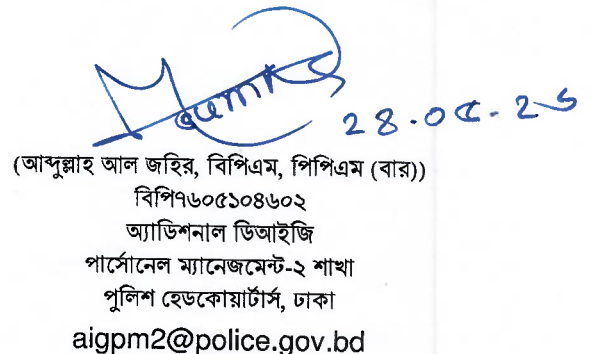 28.05.25
(আব্দুল্লাহ আল জহির, বিপিএম, পিপিএম (বার))
বিপি৭৬০৫১০৪৬০২
অ্যাডিশনাল ডিআইজি
পার্সোনেল ম্যানেজমেন্ট-২ শাখা
পুলিশ হেডকোয়ার্টার্স, ঢাকা
aigpm2@police.gov.bd